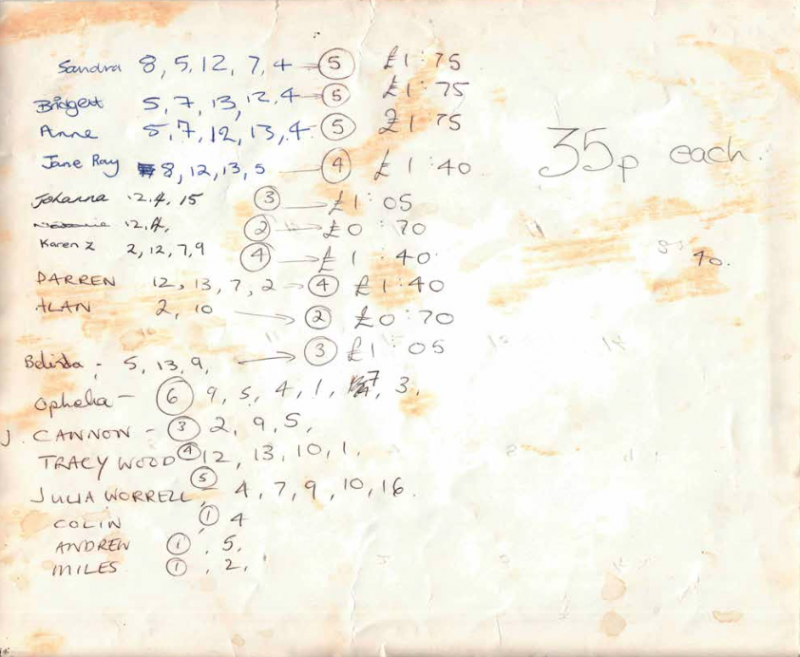 Sandra 8, 5, 12, 7, 4 → 5 £1:75
Bridgett 5, 7, 13, 12, 4 → 5 £1:75
Anne 5, 7, 12, 13, 4. 5 £1:75
35p each.
Jane Ray 8, 12, 13, 5 → 4 £1:40
Johanna 12, 4, 15 3 → £1:05
12, 4, 2 → £0:70
Karen Z 2, 12, 7, 9 4 → £1:40
40.
DARREN 12, 13, 7, 2 → 4 £1:40
ALAN 2, 10 → 2 £0:70
Belinda - 5, 13, 9, → 3 £1:05
Ophelia - 6 9, 5, 4, 1, 7, 3,
J. CANNON - 3 2, 9, 5,
TRACY WOOD 4 12, 13, 10, 1.
JULIA WORRELL 5 4, 7, 9, 10, 16.
COLIN 1 4
ANDREW 1, 5,
MILES 1, 2,